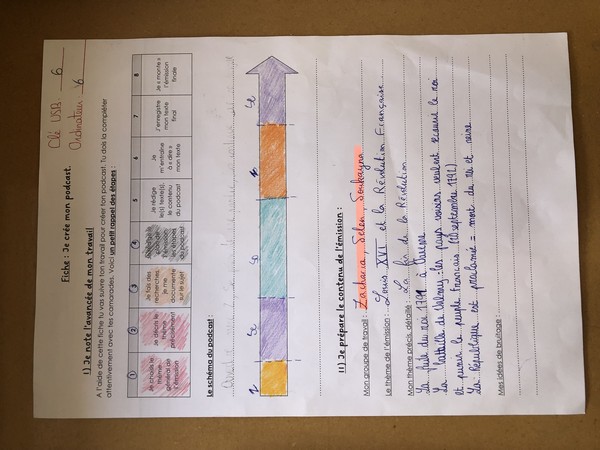 Clé USB 6
Ordinateur 6
Fiche : Je crée mon podcast.
I) Je note l'avancée de mon travail
A l'aide de cette fiche tu vas suivre ton travail pour créer ton podcast. Tu dois la compléter
attentivement avec tes camarades. Voici un petit rappel des étapes :
1 2 3 4 5 6 7 8
Je choisis le thème général de l'émission
Je décris le thème précisément
Je fais des recherches, je me documente sur le sujet
l'émission les étapes du podcast
Je rédige le(s) texte(s), le contenu du podcast
Je m'entraine à « dire » mon texte
J'enregistre mon texte final
Je « monte » l'émission finale
Le schéma du podcast :
II) Je prépare le contenu de l'émission :
Mon groupe de travail : Zacharia, Selen, Souhayna
Le thème de l'émission : Louis XVI et la Révolution Française
Mon thème précis, détaillé : La fin de la Révolution
La fuite du roi 1791 à Varenne
La bataille de Valmy : les pays voisins veulent secourir le roi
et punir le peuple français (20 septembre 1792)
La République est proclamée = mort du roi et reine
Mes idées de bruitage :